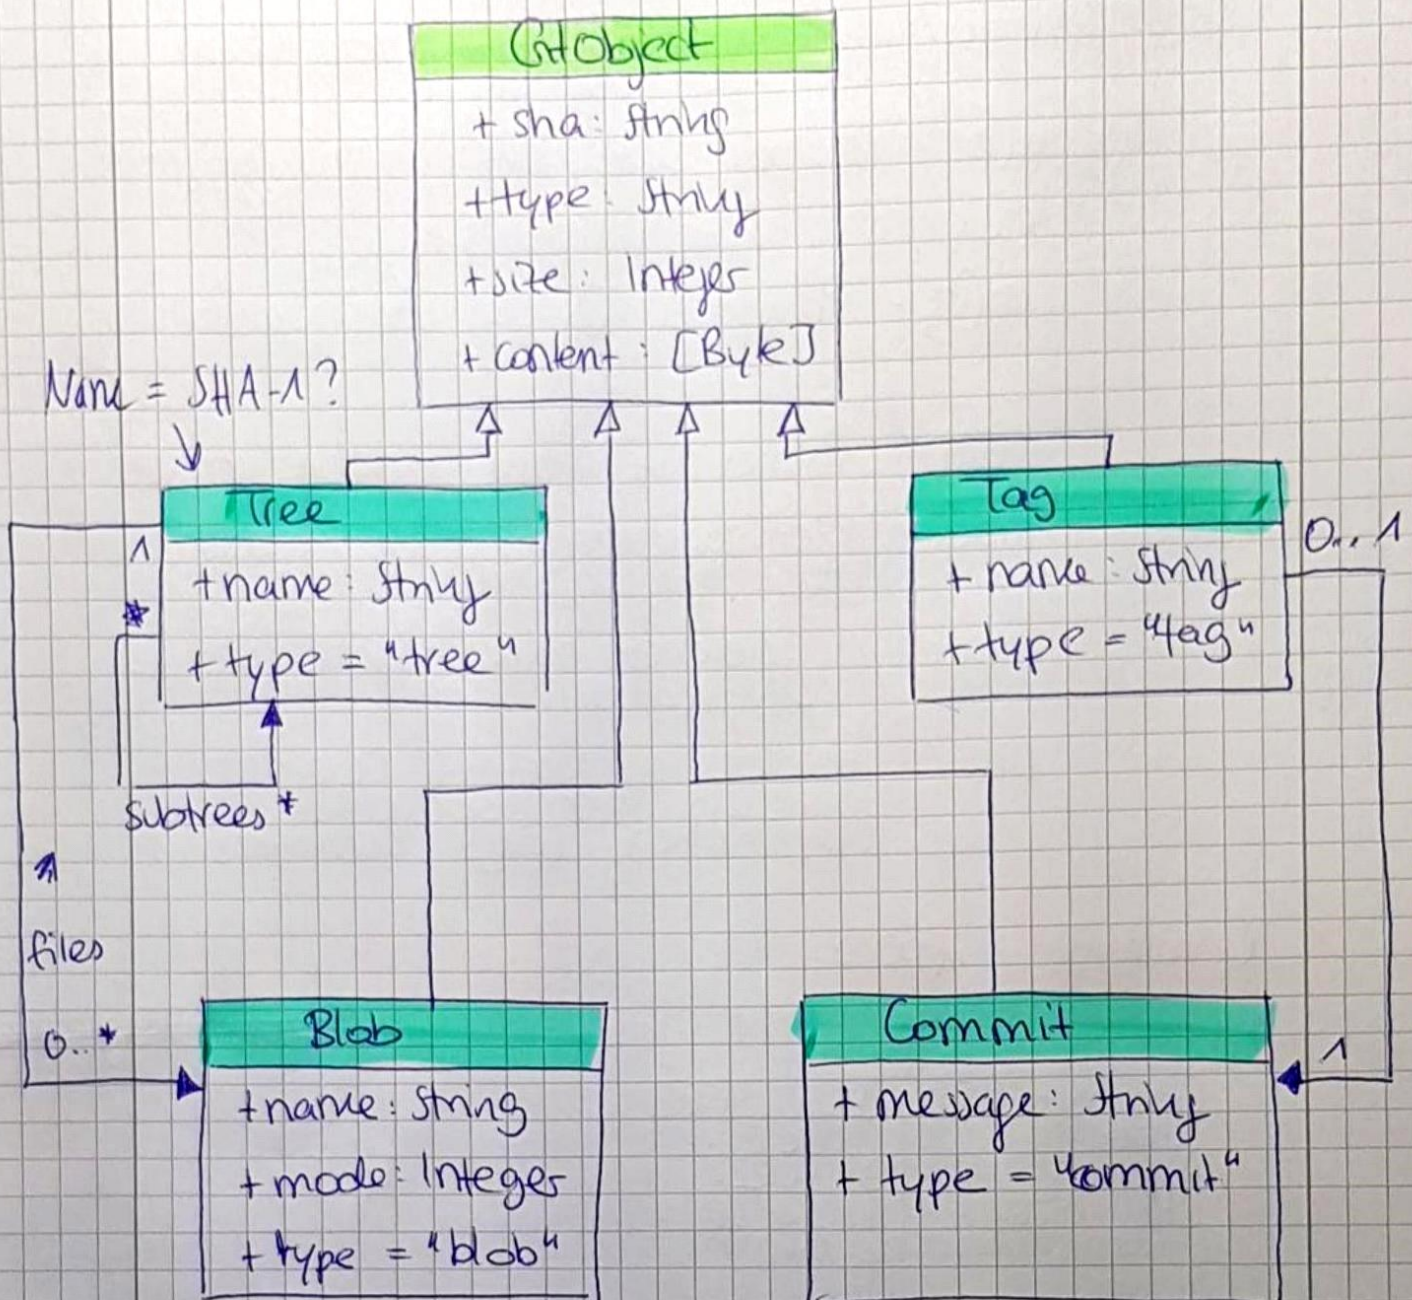 GitObject
+ sha: String
+ type: String
+ size: Integer
+ content: [Byte]
Name = SHA-1?
Tree
+ name: String
+ type = "tree"
1
*
subtrees *
Tag
+ name: String
+ type = "tag"
0..1
1
files
0..*
Blob
+ name: String
+ mode: Integer
+ type = "blob"
Commit
+ message: String
+ type = "commit"
1